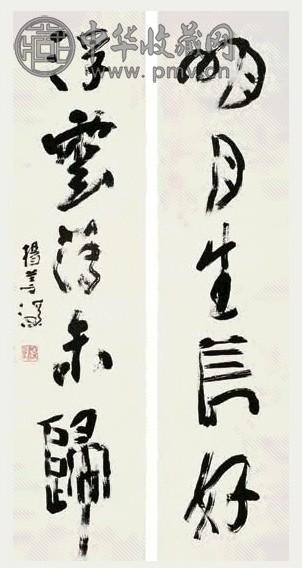 中华收藏网
www.pmv.cn
明月生長好
浮雲薄未歸
楊善深